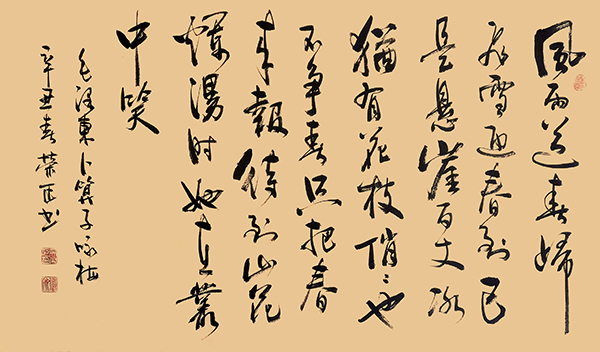 風雨送春歸
飛雪迎春到已
是懸崖百丈冰
猶有花枝俏〻也
不争春只把春
来報待到山花
爛漫时她在叢
中笑
毛泽東卜算子咏梅
辛丑春荣书